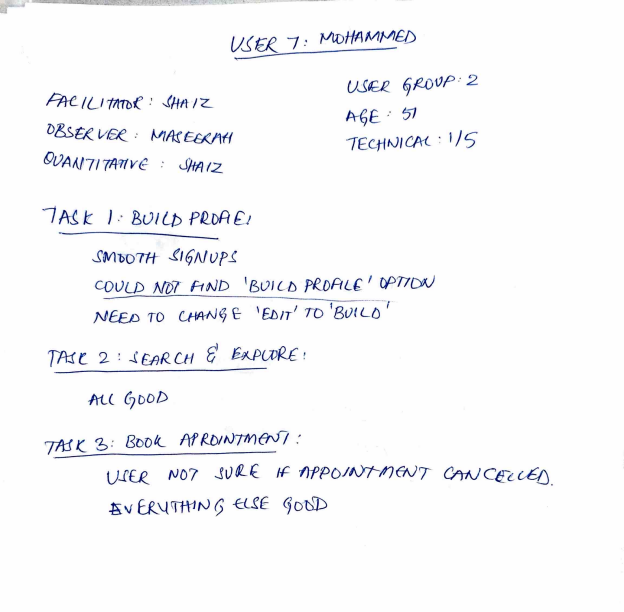 USER 7: MOHAMMED
FACILITATOR: SHAIZ
OBSERVER: MASEERAH
QUANTITATIVE: SHAIZ
USER GROUP: 2
AGE: 51
TECHNICAL: 1/5
TASK 1: BUILD PROFILE:
SMOOTH SIGNUPS
COULD NOT FIND 'BUILD PROFILE' OPTION
NEED TO CHANGE 'EDIT' TO 'BUILD'
TASK 2: SEARCH & EXPLORE:
ALL GOOD
TASK 3: BOOK APPOINTMENT:
USER NOT SURE IF APPOINTMENT CANCELLED.
EVERYTHING ELSE GOOD